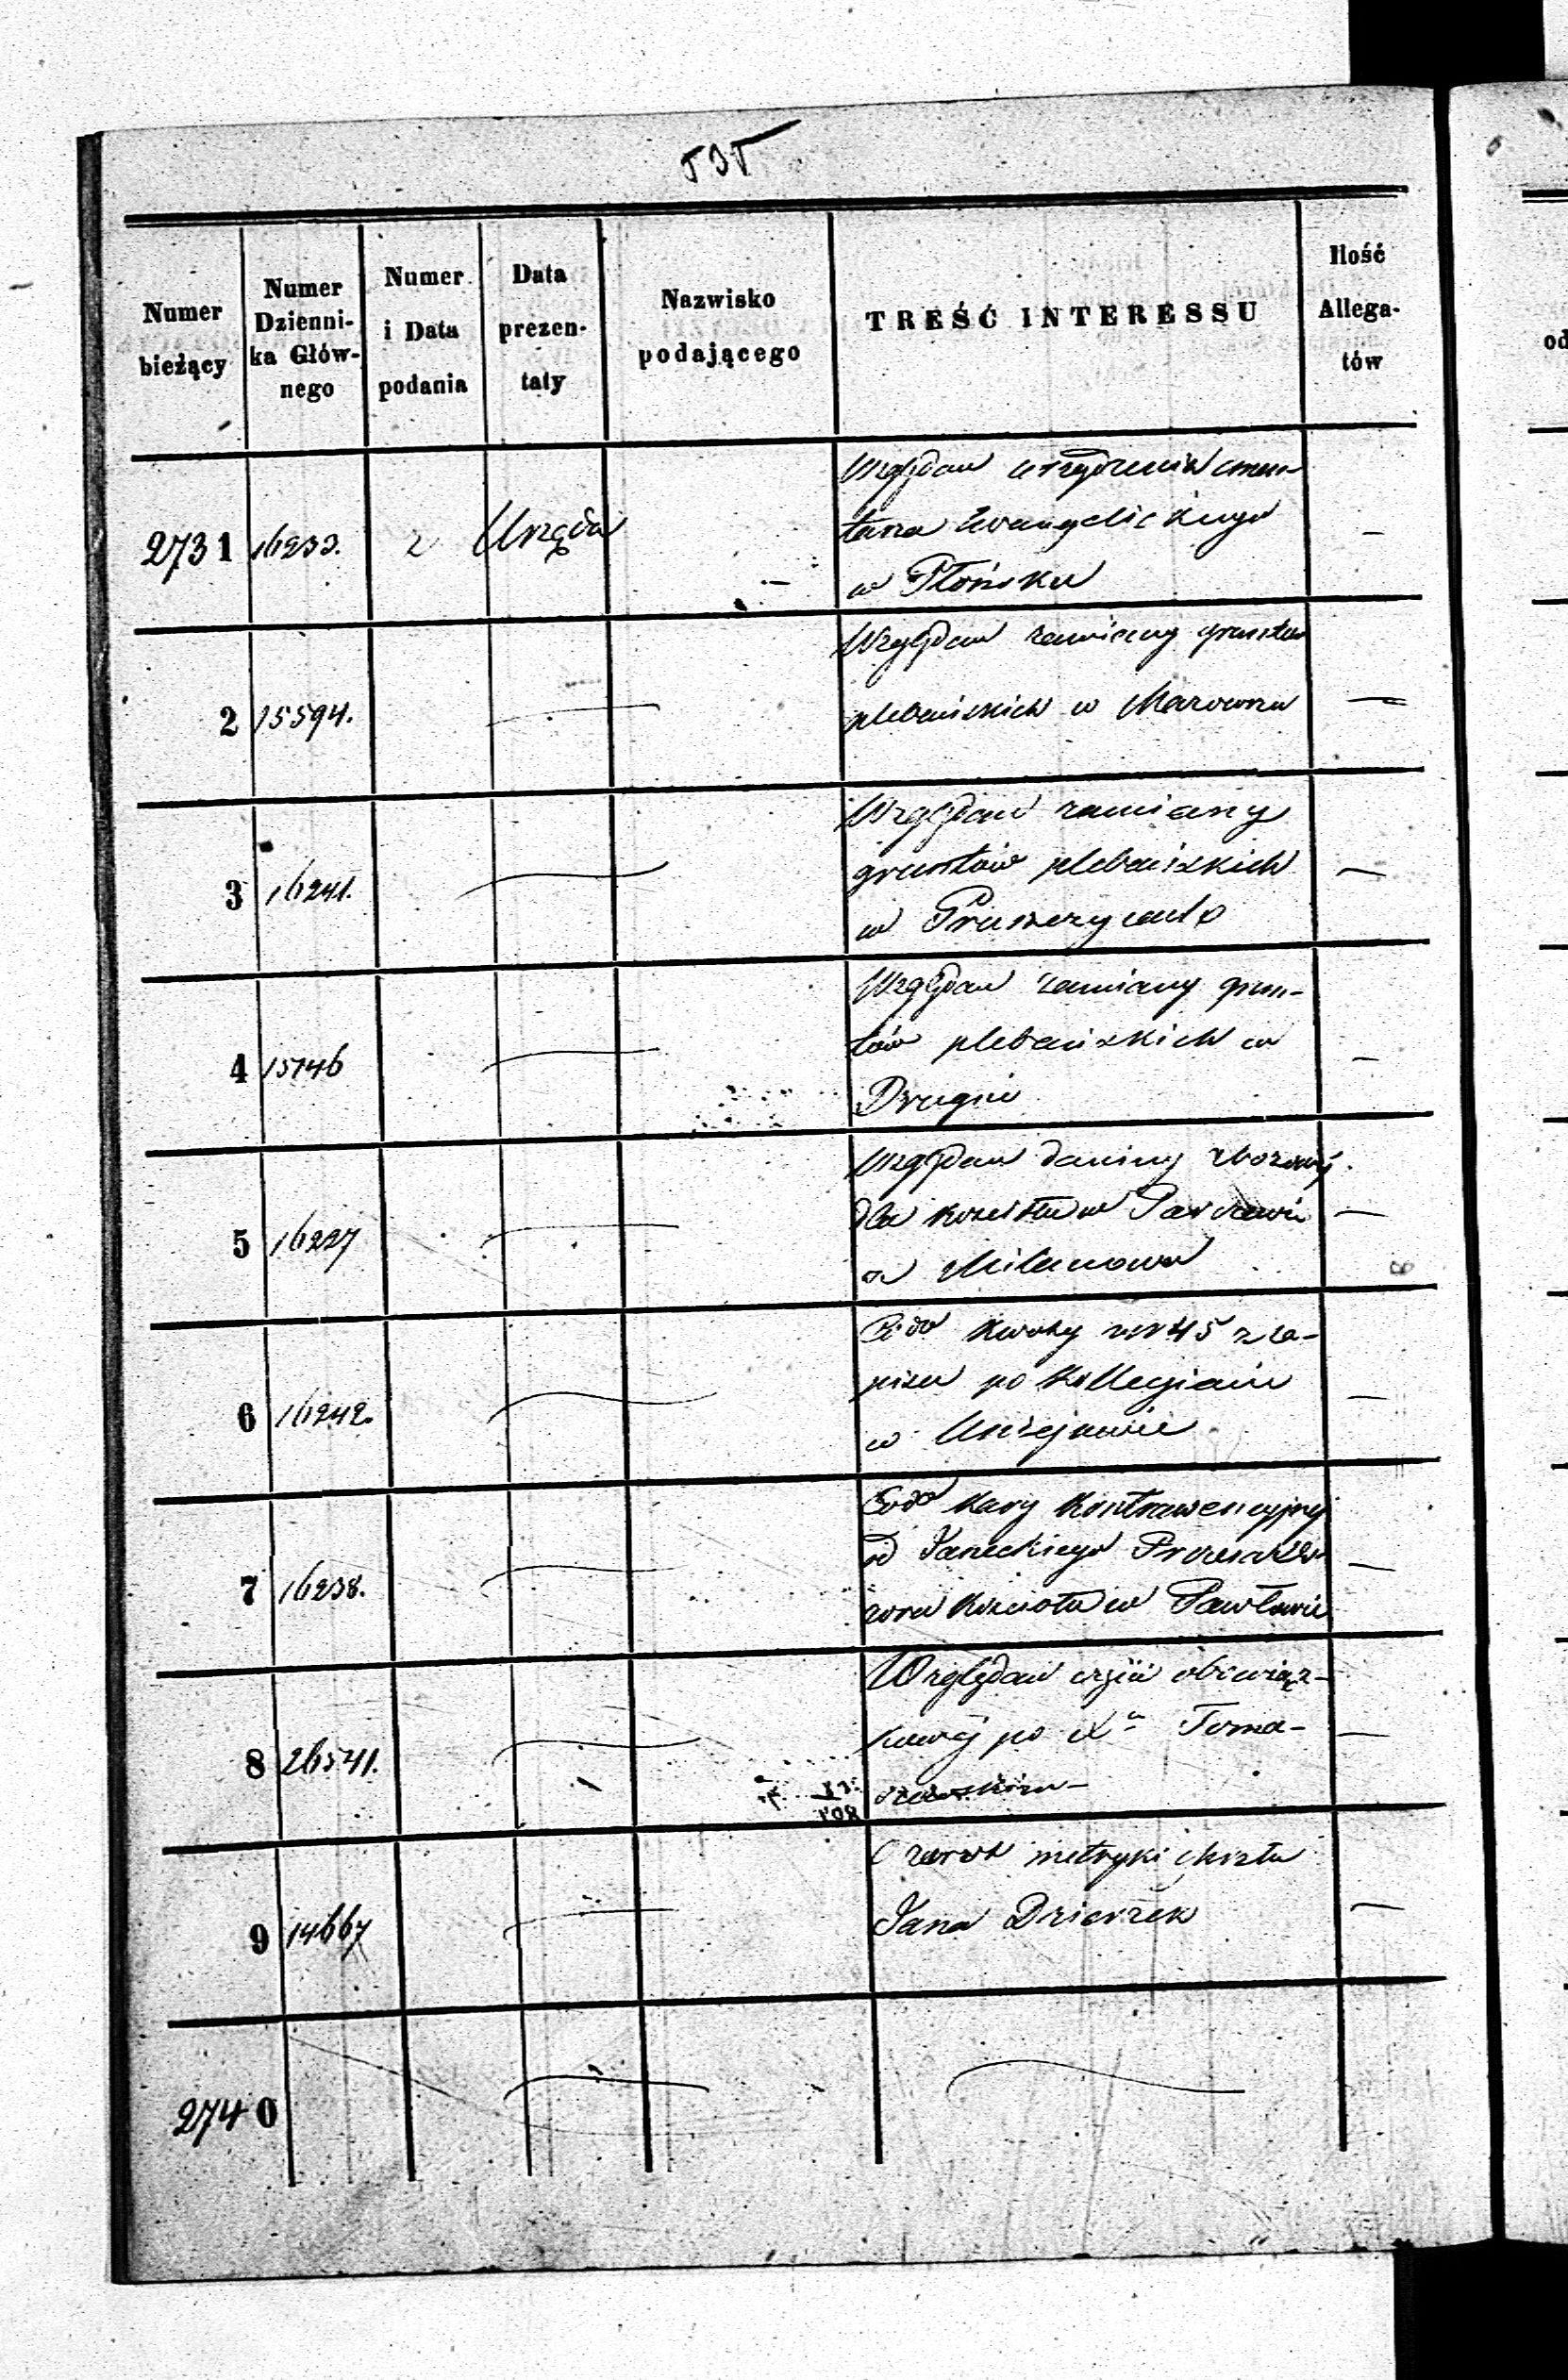 535
Numer bieżący
Numer Dzienni-
ka Głów-
nego
Numer i Data podania
Data prezen-
taty
Nazwisko podającego
TREŚĆ INTERESSU
Ilość Allega-
tów
2731 16233. z Urzędu
Względem urządzenia cmen-
tarza Ewangelickiego
w Płońsku —
2 15594.
Względem zamiany gruntów
plebańskich w Mazowszu —
3 16241.
Względem zamiany
gruntów plebańskich
w —
4 15746
Względem zamiany grun-
tów plebańskich w
Drugni —
5 16227
Względem daniny zbożowéj
dla kościołów Parczewie
a Milanowa —
6 16242.
kwoty rsr 45 z za-
pisu po Kollegiacie
w Uniejowie —
7 16238.
kary kontrawencyjnéj
od Janeckiego
kościoła w Pawłowie —
8 26541.
Względem obowiąz-
kowéj po Xu Toma-
szewskim —
9 14667
O zwrot metryki chrztu
Jana Dzierżek —
2740